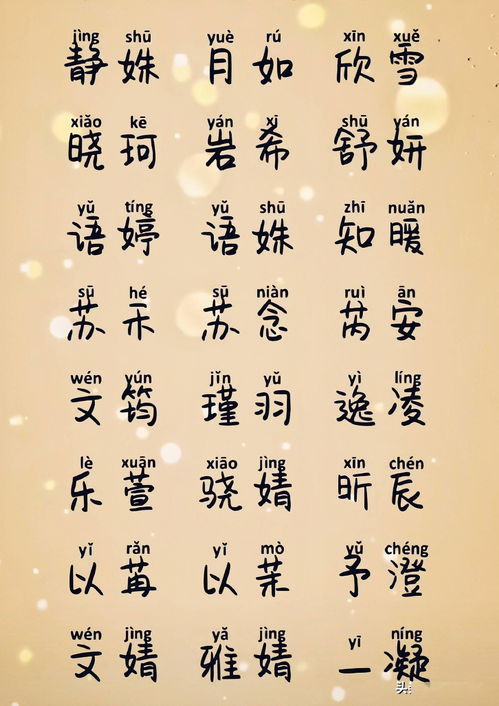 jìng shū yuè rú xīn xuě
静姝 月如 欣雪
xiǎo kē yán xī shū yán
晓珂 岩希 舒妍
yǔ tíng yǔ shū zhī nuǎn
语婷 语姝 知暖
sū hé sū niàn ruì ān
苏禾 苏念 芮安
wén yún jǐn yǔ yì líng
文筠 瑾羽 逸凌
lè xuān xiāo jìng xīn chén
乐萱 骁婧 昕辰
yǐ rǎn yǐ mò yǔ chéng
以苒 以茉 予澄
wén jìng yǎ jìng yī níng
文婧 雅婧 一凝
头